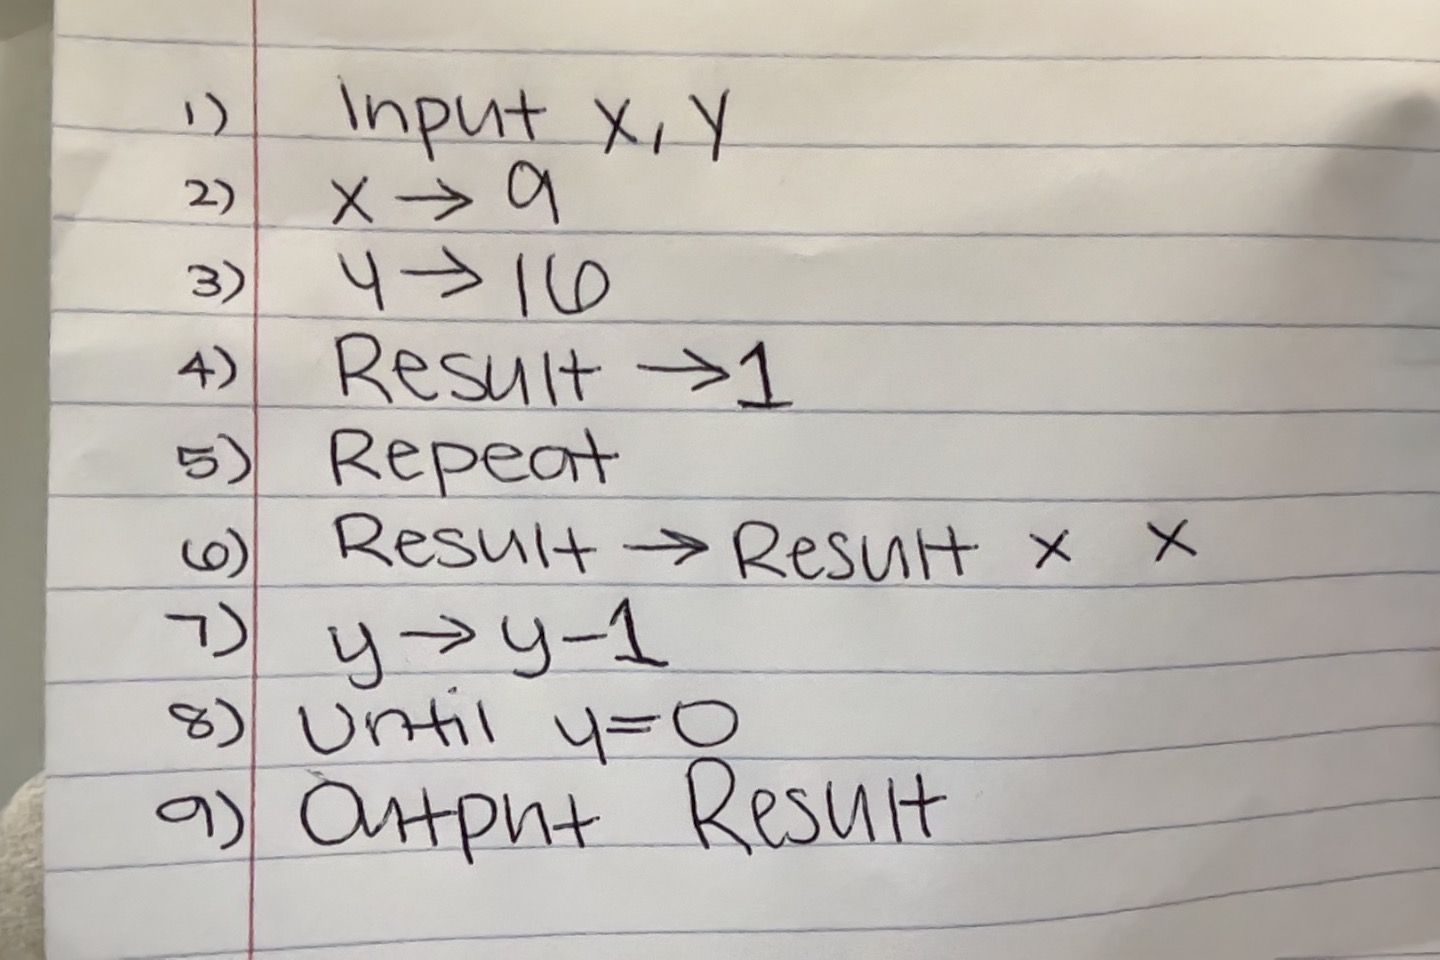 1) Input x, y
2) x → 9
3) y → 16
4) Result → 1
5) Repeat
6) Result → Result x x
7) y → y-1
8) Until y=0
9) Output Result